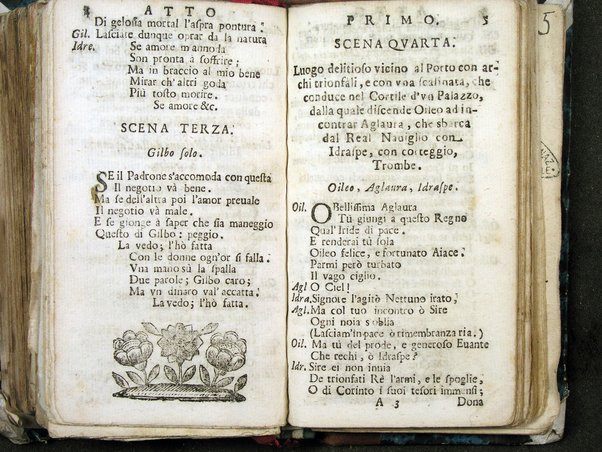 4 ATTO
Di gelosia mortal l'aspra pontura.
Gil. Lasciate dunque oprar da la natura
Idre. Se amore m'annoda
Son pronta a soffrire;
Ma in braccio al mio bene
Mirar ch'altri goda
Più tosto morire.
Se amore &c.
SCENA TERZA.
Gilbo solo.
SE il Padrone s'accomoda con questa
Il negotio và bene.
Ma se dell'altra poi l'amor preuale
Il negotio và male.
E se gionge à saper che sia maneggio
Questo di Gilbo: peggio.
La vedo; l'hò fatta
Con le donne ogn'or si falla.
Vna mano sù la spalla
Due parole; Gilbo caro;
Ma vn dinaro val'accatta.
La vedo; l'hò fatta.
PRIMO. 5
SCENA QVARTA.
Luogo delitioso vicino al Porto con ar-
chi trionfali, e con vna scalinata, che
conduce nel Cortile d'vn Palazzo,
dalla quale discende Oileo ad in-
contrar Aglaura, che sbarca
dal Real Nauiglio con
Idraspe, con corteggio,
Trombe.
Oileo, Aglaura, Idraspe.
Oil. O Bellissima Aglaura
Tù giungi à questo Regno
Qual'Iride di pace.
E renderai tù sola
Oileo felice, e fortunato Aiace.
Parmi però turbato
Il vago ciglio.
Agl O Ciel!
Idra. Signore l'agitò Nettuno irato.
Agl. Ma col tuo incontro ò Sire
Ogni noia s'oblia
(Lasciam'in pace ò rimembranza ria.)
Oil. Ma tù del prode, e generoso Euante
Che rechi, ò Idraspe?
Idr. Sire ei non inuia
De trionfati Rè l'armi, e le spoglie,
O di Corinto i suoi tesori immensi;
A 3 Dona
5